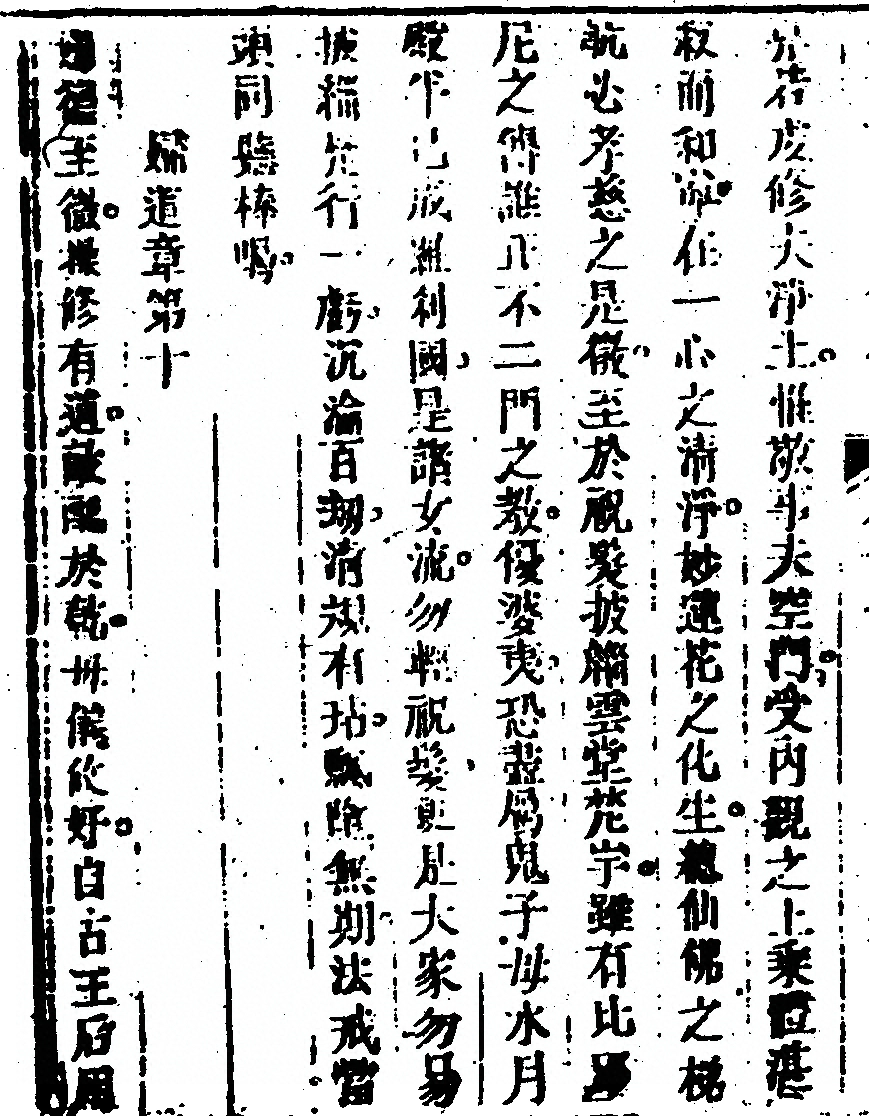 若度修大淨土惟敬事夫空門受內觀之上乘體湛
寂而和雍在一心之清淨妙蓮花之化生總仙佛之梯
航必孝慈之是徵至於祝髮披緇雲堂梵宇雖有比
尼之傳誰正不二門之教優婆夷恐盡屬鬼子母水月
殿乍已成灑利國是諸女流勿輕祝髮更是大家勿易
披緇先行一虧沉淪百劫清規有玷飄墮無期法戒當
頭同聽棒喝
婦道章第十
德至微操修有道敵配於乾母儀攸好自古王后用